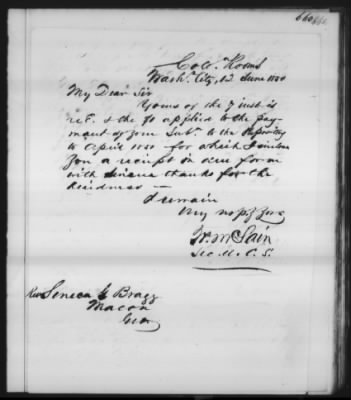 Colo. Rooms
Wash. City, 12 June 1850
My Dear Sir
Yours of the 7 inst is
rec. & the $2 applied to the pay-
ment of your Subn. to the Repository
to April 1850 - for which I enclose
you a receipt in due form
with sincere thanks for the
kindness -
I remain
Very resply Yours
W. McLain
Sec. A. C. S.
Rev Seneca G Bragg
Macon
Geo